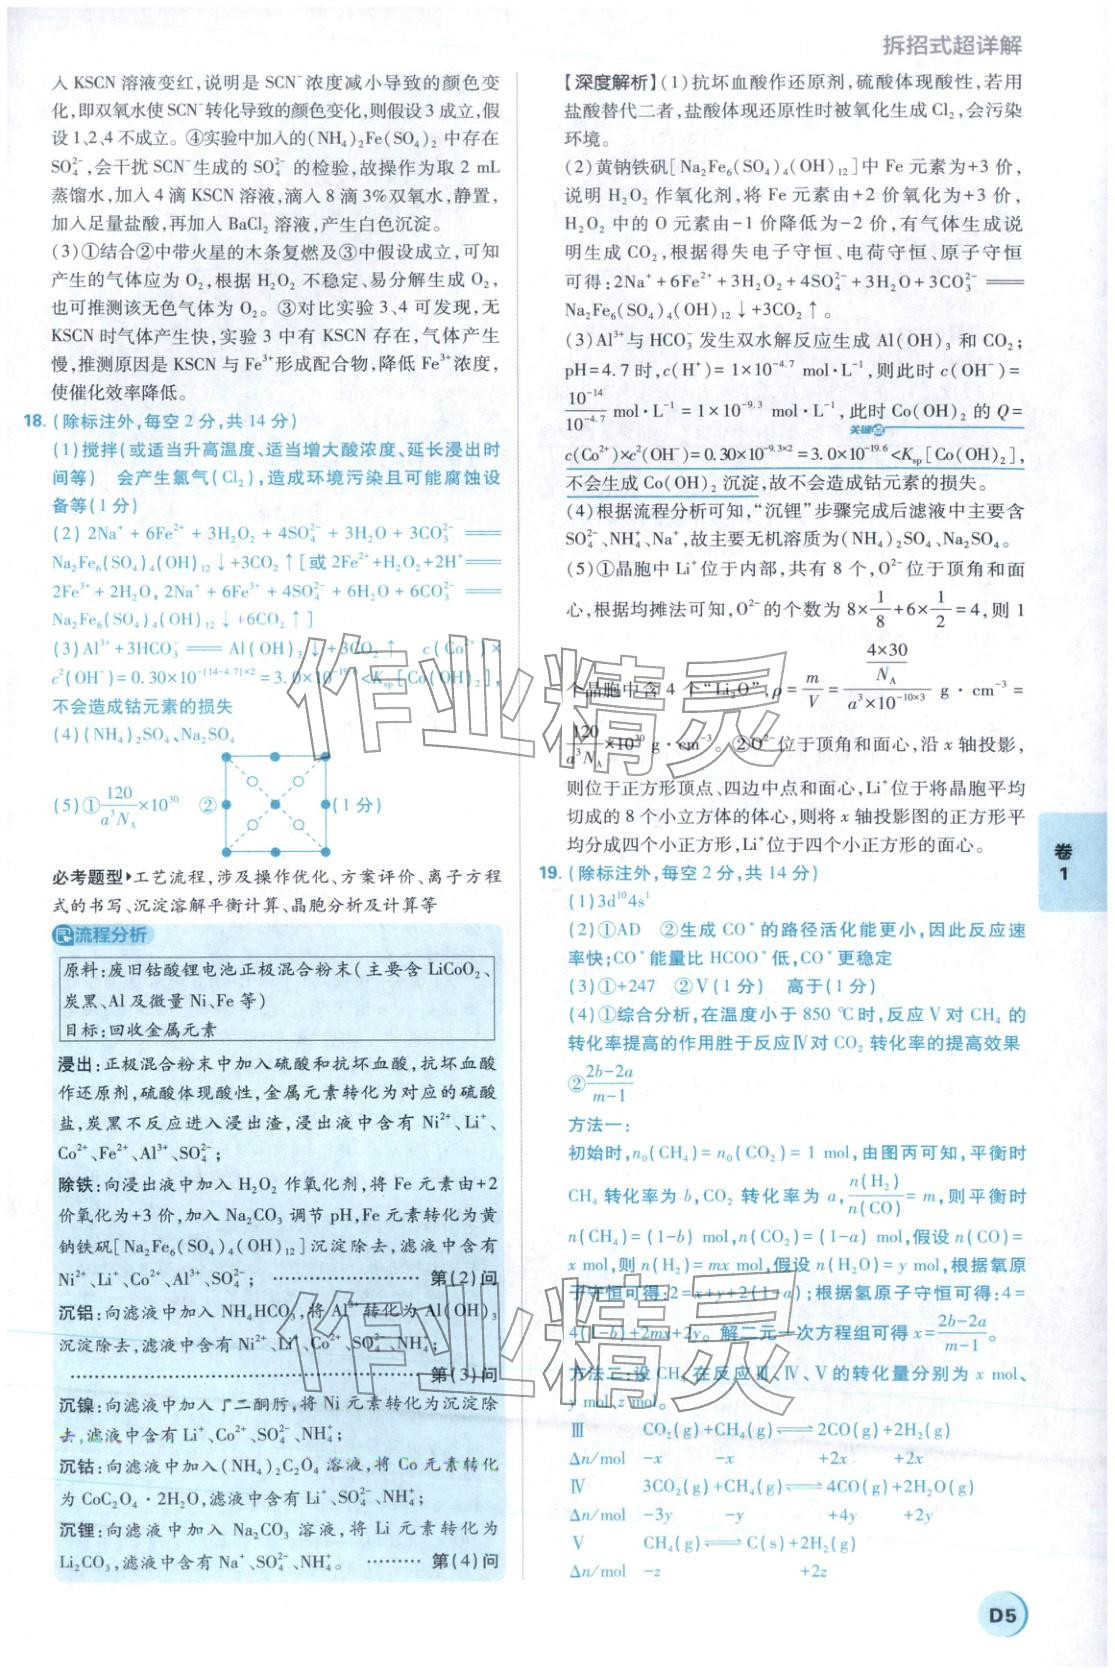 拆招式超详解
入 KSCN 溶液变红,说明是 SCN⁻浓度减小导致的颜色变
化,即双氧水使 SCN⁻转化导致的颜色变化,则假设 3 成立,假
设 1、2、4 不成立。④实验中加入的(NH₄)₂Fe(SO₄)₂ 中存在
SO₄²⁻,会干扰 SCN⁻生成的 SO₄²⁻ 的检验,故操作为取 2 mL
蒸馏水,加入 4 滴 KSCN 溶液,滴入 8 滴 3%双氧水,静置,
加入足量盐酸,再加入 BaCl₂ 溶液,产生白色沉淀。
(3)①结合②中带火星的木条复燃及③中假设成立,可知
产生的气体应为 O₂,根据 H₂O₂ 不稳定、易分解生成 O₂,
也可推测该无色气体为 O₂。③对比实验 3、4 可发现,无
KSCN 时气体产生快,实验 3 中有 KSCN 存在,气体产生
慢,推测原因是 KSCN 与 Fe³⁺形成配合物,降低 Fe³⁺浓度,
使催化效率降低。
18. (除标注外,每空 2 分,共 14 分)
(1)搅拌(或适当升高温度、适当增大酸浓度、延长浸出时
间等) 会产生氯气(Cl₂),造成环境污染且可能腐蚀设
备等(1 分)
(2) 2Na⁺ + 6Fe²⁺ + 3H₂O₂ + 4SO₄²⁻ + 3H₂O + 3CO₃²⁻ ══
Na₂Fe₆(SO₄)₄(OH)₁₂↓+3CO₂↑[或 2Fe²⁺+H₂O₂+2H⁺══
2Fe³⁺ + 2H₂O, 2Na⁺ + 6Fe³⁺ + 4SO₄²⁻ + 6H₂O + 6CO₃²⁻ ══
Na₂Fe₆(SO₄)₄(OH)₁₂↓+6CO₂↑]
(3)Al³⁺+3HCO₃⁻══Al(OH)₃↓+3CO₂↑ c(Co²⁺)×
c²(OH⁻)=0.30×10^{-(14-4.7)×2}=3.0×10^{-19.6}<Kₛₚ[Co(OH)₂],
不会造成钴元素的损失
(4)(NH₄)₂SO₄、Na₂SO₄
(5)①120/(a³N_A)×10³⁰ ② (1 分)
必考题型▶工艺流程,涉及操作优化、方案评价、离子方程
式的书写、沉淀溶解平衡计算、晶胞分析及计算等
流程分析
原料:废旧钴酸锂电池正极混合粉末(主要含 LiCoO₂、
炭黑、Al 及微量 Ni、Fe 等)
目标:回收金属元素
浸出:正极混合粉末中加入硫酸和抗坏血酸,抗坏血酸
作还原剂,硫酸体现酸性,金属元素转化为对应的硫酸
盐,炭黑不反应进入浸出渣,浸出液中含有 Ni²⁺、Li⁺、
Co²⁺、Fe²⁺、Al³⁺、SO₄²⁻;
除铁:向浸出液中加入 H₂O₂ 作氧化剂,将 Fe 元素由+2
价氧化为+3 价,加入 Na₂CO₃ 调节 pH,Fe 元素转化为黄
钠铁矾[Na₂Fe₆(SO₄)₄(OH)₁₂]沉淀除去,滤液中含有
Ni²⁺、Li⁺、Co²⁺、Al³⁺、SO₄²⁻; ……………………… 第(2)问
沉铝:向滤液中加入 NH₄HCO₃,将 Al³⁺转化为 Al(OH)₃
沉淀除去,滤液中含有 Ni²⁺、Li⁺、Co²⁺、SO₄²⁻、NH₄⁺;
……………………………………………………… 第(3)问
沉镍:向滤液中加入丁二酮肟,将 Ni 元素转化为沉淀除
去,滤液中含有 Li⁺、Co²⁺、SO₄²⁻、NH₄⁺;
沉钴:向滤液中加入(NH₄)₂C₂O₄ 溶液,将 Co 元素转化
为 CoC₂O₄·2H₂O,滤液中含有 Li⁺、SO₄²⁻、NH₄⁺;
沉锂:向滤液中加入 Na₂CO₃ 溶液,将 Li 元素转化为
Li₂CO₃,滤液中含有 Na⁺、SO₄²⁻、NH₄⁺。 ……… 第(4)问
【深度解析】(1)抗坏血酸作还原剂,硫酸体现酸性,若用
盐酸替代二者,盐酸体现还原性时被氧化生成 Cl₂,会污染
环境。
(2)黄钠铁矾[Na₂Fe₆(SO₄)₄(OH)₁₂]中 Fe 元素为+3 价,
说明 H₂O₂ 作氧化剂,将 Fe 元素由+2 价氧化为+3 价,
H₂O₂ 中的 O 元素由−1 价降低为−2 价,有气体生成说
明生成 CO₂,根据得失电子守恒、电荷守恒、原子守恒
可得:2Na⁺+6Fe²⁺+3H₂O₂+4SO₄²⁻+3H₂O+3CO₃²⁻══
Na₂Fe₆(SO₄)₄(OH)₁₂↓+3CO₂↑。
(3)Al³⁺与 HCO₃⁻ 发生双水解反应生成 Al(OH)₃ 和 CO₂;
pH=4.7 时,c(H⁺)=1×10^{-4.7} mol·L⁻¹,则此时 c(OH⁻)=
10^{-14}/10^{-4.7} mol·L⁻¹=1×10^{-9.3} mol·L⁻¹,此时 Co(OH)₂ 的 Q=
关键点
c(Co²⁺)×c²(OH⁻)=0.30×10^{-9.3×2}=3.0×10^{-19.6}<Kₛₚ[Co(OH)₂],
不会生成 Co(OH)₂ 沉淀,故不会造成钴元素的损失。
(4)根据流程分析可知,“沉锂”步骤完成后滤液中主要含
SO₄²⁻、NH₄⁺、Na⁺,故主要无机溶质为(NH₄)₂SO₄、Na₂SO₄。
(5)①晶胞中 Li⁺位于内部,共有 8 个,O²⁻位于顶角和面
心,根据均摊法可知,O²⁻的个数为 8×1/8+6×1/2=4,则 1
个晶胞中含 4 个“Li₂O”,ρ=m/V=(4×30/N_A)/(a³×10^{-10×3}) g·cm⁻³=
120/(a³N_A)×10³⁰ g·cm⁻³。②O²⁻位于顶角和面心,沿 x 轴投影,
则位于正方形顶点、四边中点和面心,Li⁺位于将晶胞平均
切成的 8 个小立方体的体心,则将 x 轴投影图的正方形平
均分成四个小正方形,Li⁺位于四个小正方形的面心。
19. (除标注外,每空 2 分,共 14 分)
(1)3d¹⁰4s¹
(2)①AD ②生成 CO* 的路径活化能更小,因此反应速
率快;CO*能量比 HCOO*低,CO*更稳定
(3)①+247 ②Ⅴ(1 分) 高于(1 分)
(4)①综合分析,在温度小于 850 ℃时,反应Ⅴ对 CH₄ 的
转化率提高的作用胜于反应Ⅳ对 CO₂ 转化率的提高效果
②(2b-2a)/(m-1)
方法一:
初始时,n₀(CH₄)=n₀(CO₂)=1 mol,由图丙可知,平衡时
CH₄ 转化率为 b,CO₂ 转化率为 a,n(H₂)/n(CO)=m,则平衡时
n(CH₄)=(1-b) mol,n(CO₂)=(1-a) mol,假设 n(CO)=
x mol,则 n(H₂)=mx mol,假设 n(H₂O)=y mol,根据氧原
子守恒可得:2=x+y+2(1-a);根据氢原子守恒可得:4=
4(1-b)+2mx+2y。解二元一次方程组可得 x=(2b-2a)/(m-1)。
方法二:设 CH₄ 在反应Ⅲ、Ⅳ、Ⅴ的转化量分别为 x mol、
y mol、z mol。
Ⅲ CO₂(g)+CH₄(g)⇌2CO(g)+2H₂(g)
Δn/mol -x -x +2x +2x
Ⅳ 3CO₂(g)+CH₄(g)⇌4CO(g)+2H₂O(g)
Δn/mol -3y -y +4y +2y
Ⅴ CH₄(g)⇌C(s)+2H₂(g)
Δn/mol -z +2z
卷
1
D5
作业精灵
作业精灵